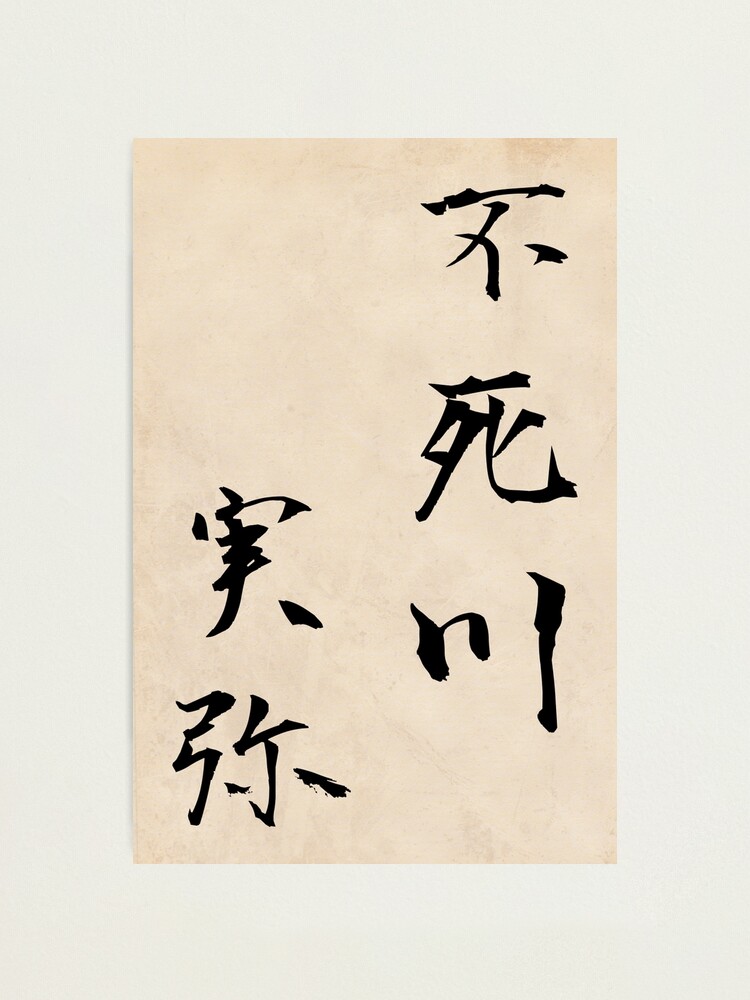 不死川
実弥